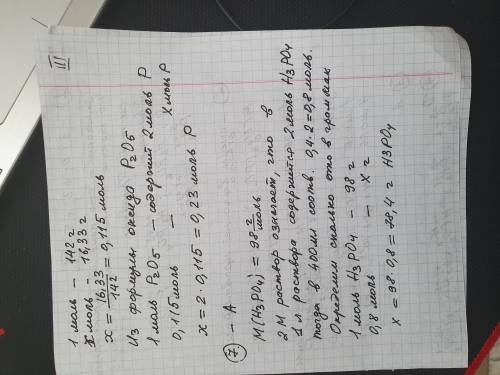 III
1 моль – 142 г
x моль – 16,33 г
x = 16,33/142 = 0,115 моль
Из формулы оксида P2O5
1 моль P2O5 – содержит 2 моль P
0,115 моль – x моль P
x = 2 · 0,115 = 0,23 моль P
7 – A
M(H3PO4) = 98 г/моль
2 М раствор означает, что в
1 л раствора содержится 2 моль H3PO4
тогда в 400 мл соотв. 0,4 · 2 = 0,8 моль.
Определим сколько это в граммах
1 моль H3PO4 – 98 г
0,8 моль – x г
x = 98 · 0,8 = 78,4 г H3PO4